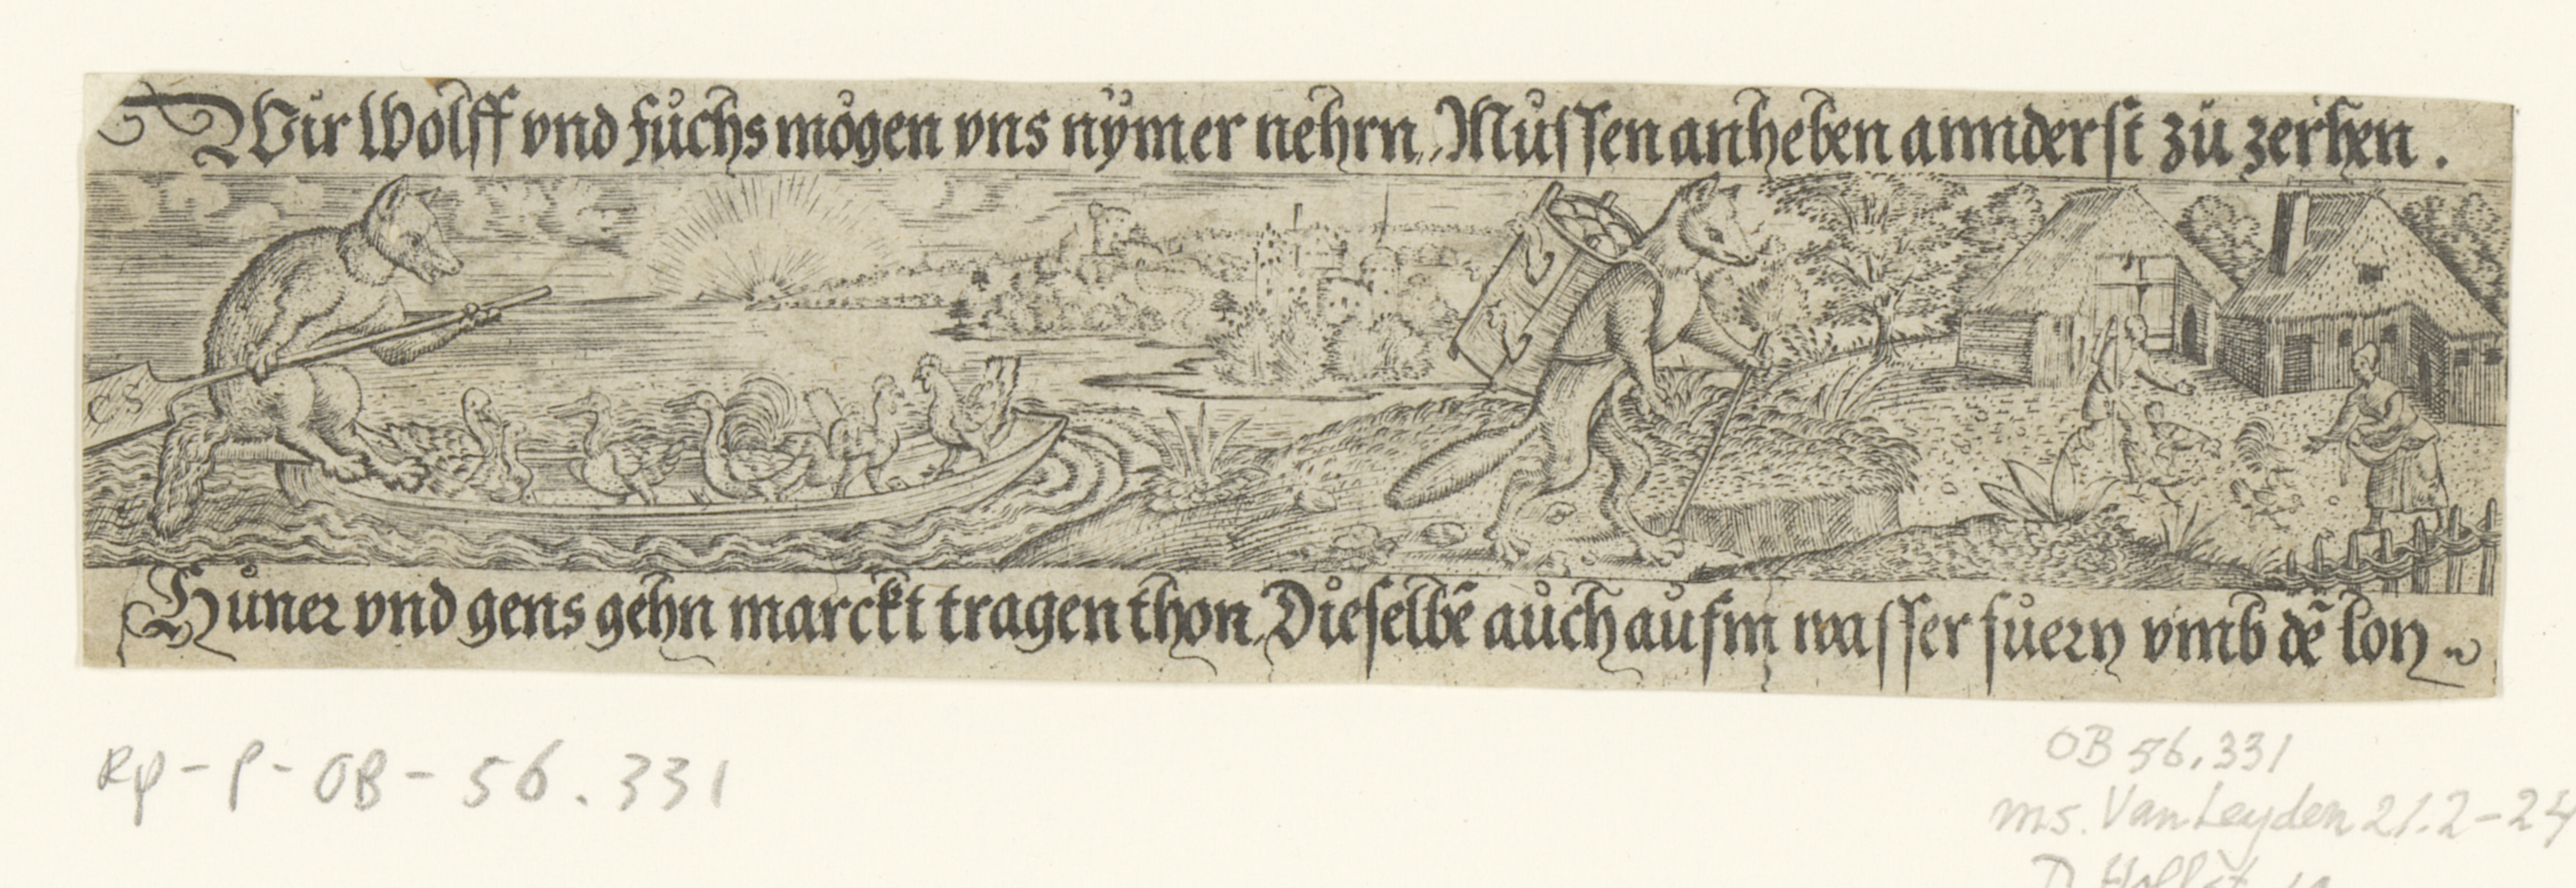 Wir Wolff vnd fuchs mögen vns nÿmer nehrn, Mussen anheben annderst zu zerhen.
CS
Huner vnd gens gehn marckt tragen thon, Dieselbē auch aufm wasser fuern vmb dē lon
RP-P-OB-56.331
OB 56.331
ms. Van Leyden 21.2-24